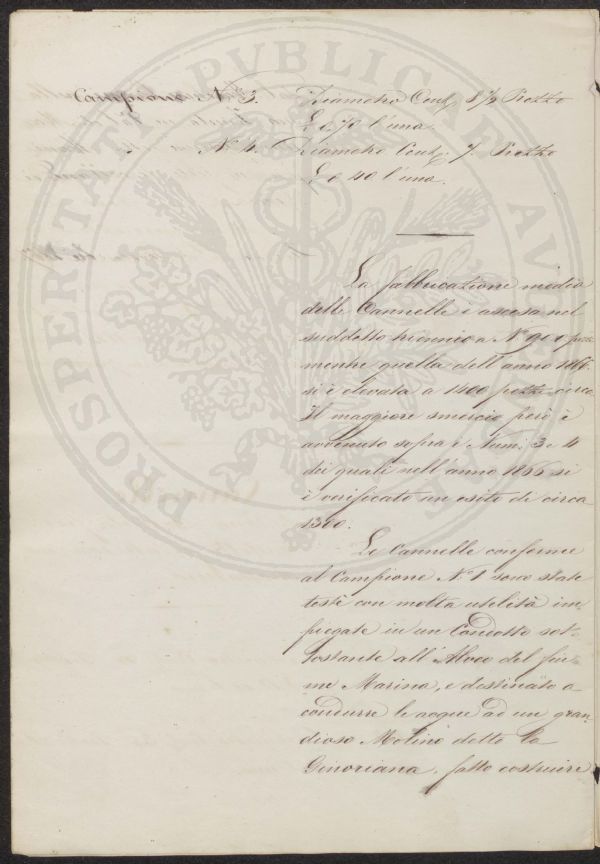 Campione N. 3. Diametro Cent. 8 1/2 Prezzo
£ 0,70 l'una.
N. 4. Diametro Cent. 7. Prezzo
£ 0 40 l'una.
La fabbricazione media
delle Cannelle è ascesa nel
suddetto triennio a N° 900 pezzi
mentre quella dell'anno 1866
si è elevata a 1400 pezzi circa
Il maggiore smercio però è
avvenuto sopra i Num. 3 e 4
dei quali nell'anno 1866 si
è verificato un esito di circa
1300.
Le Cannelle conforme
al Campione N° 1 sono state
testè con molta utilità im
piegate in un Condotto sot-
tostante all'Alveo del fiu
me Marina, e destinato a
condurre le acque ad un gran
dioso Molino detto la
Ginoriana, fatto costruire
PROSPERITATI PVBLICAE AVGENDAE